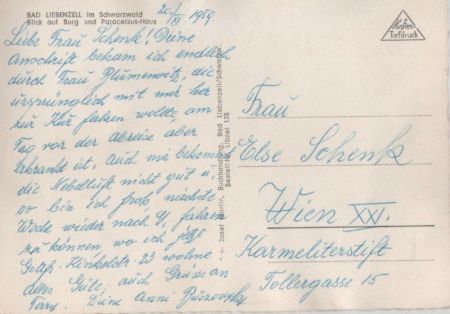 BAD LIEBENZELL im Schwarzwald
Blick auf Burg und Paracelsus-Haus
20./XI 1959.
Liebe Frau Schenk! Deine
Anschrift bekam ich endlich
durch Frau Blümewitz, die
ursprünglich mit mir her
zur Kur fahren wollte, am
Tag vor der Abreise aber
erkrankt ist. Auch mir bekommt
die Nebelluft nicht gut u.
so bin ich froh nächste
Woche wieder nach
fahren
zu können, wo ich jetzt
Hinkelstr. 23 wohne
Alles Gute, auch Grüsse an
Ferry. Deine Anni
Josef Martin, Buchhandlung, Bad Liebenzell/Schwarzw.
Bestell-Nr. Libzel 178
Kupfer-
Tiefdruck
Frau
Else Schenk
Wien XXI.
Karmeliterstift
Tollergasse 15